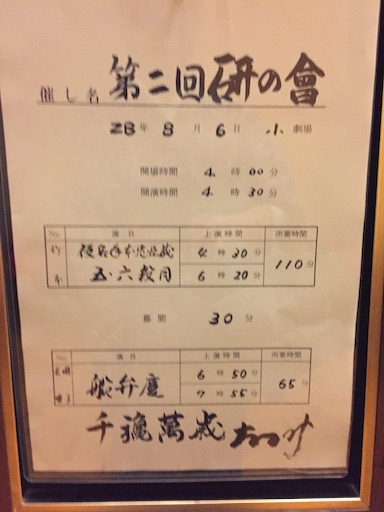 催し名 第二回研の會
28年 8月 6日 小劇場
開場時間 4時00分
開演時間 4時30分
No. 演目 上演時間 所要時間
仮名手本忠臣蔵 4時30分
五・六段目 6時20分 110分
幕間 30分
No. 演目 上演時間 所要時間
船弁慶 6時50分
7時55分 65分
千穐萬歳